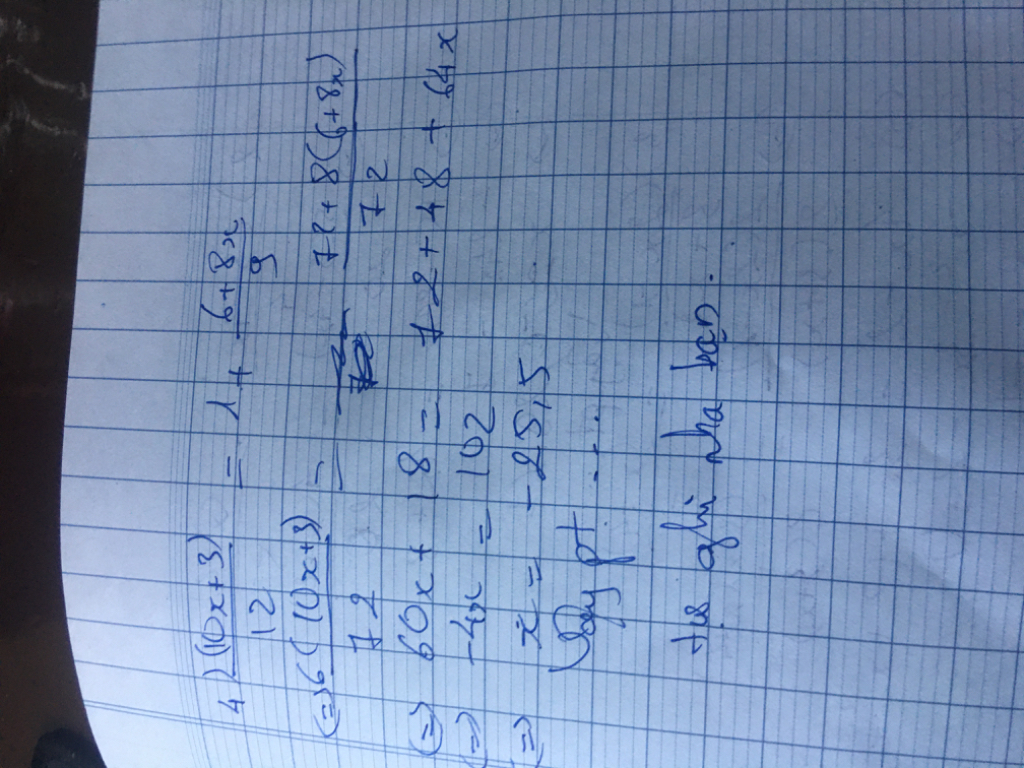 4) (10x+3)/12 = 1 + (6+8x)/9
(=) 6(10x+3)/72 = (72+8(6+8x))/72
(=) 60x + 18 = 72 + 48 + 64x
(=) -4x = 102
(=) x = -25,5
Vậy pt ....
tự ghi nha bạn.